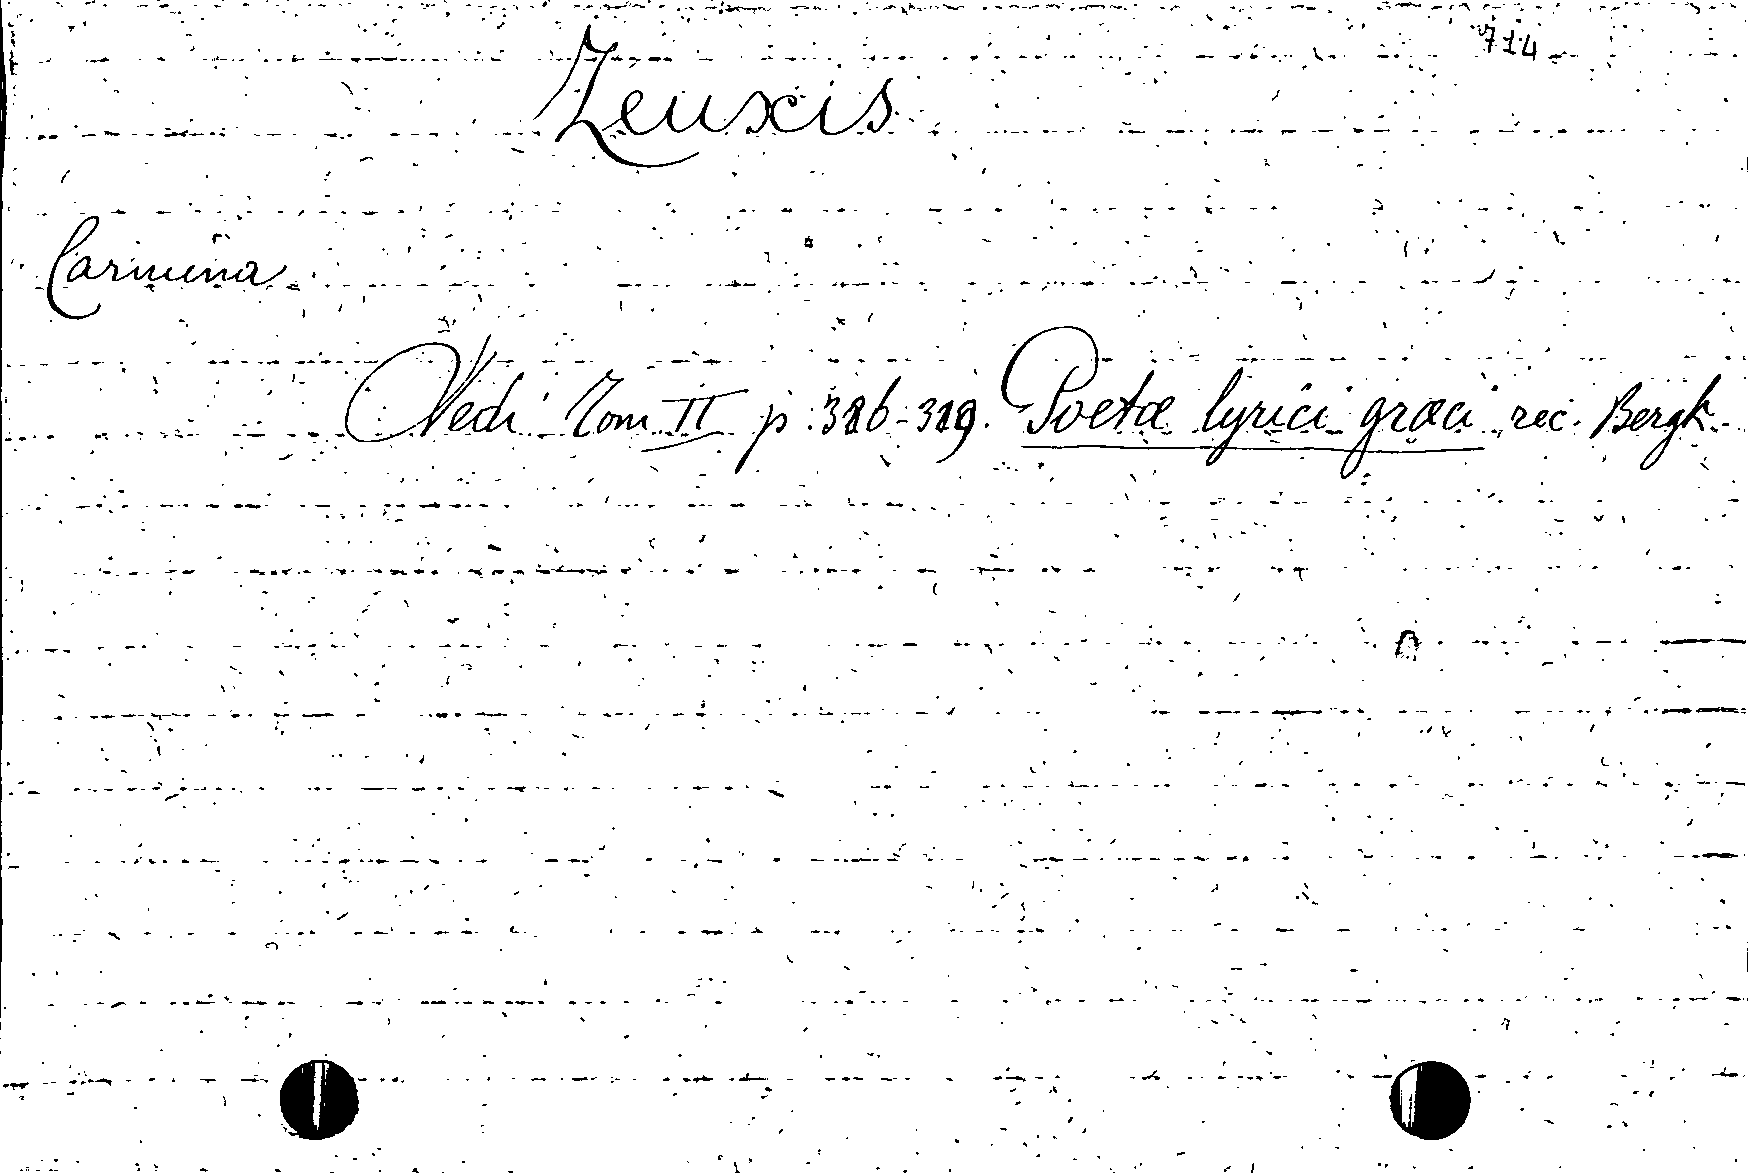 714
Zeuxis
Carmina
Vedi Tom II p. 318-319. Poetæ lyrici græci rec. Bergk.